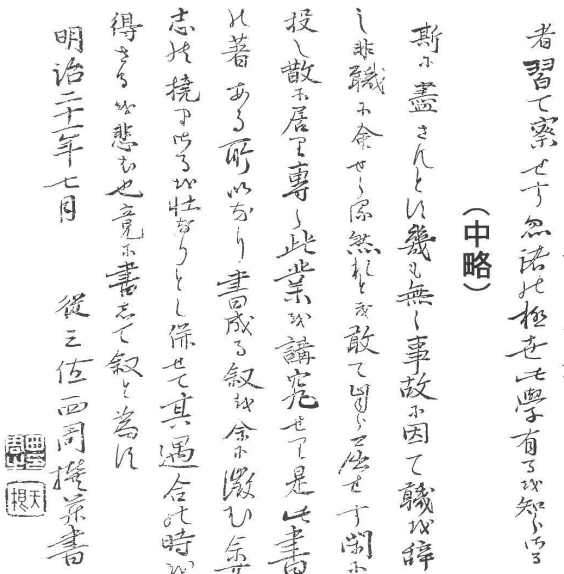 者習て察せす忽諸の極世此學有るを知らさる
（中略）
斯に盡さんとす幾も無く事故に因て職を辞
し非職に命せらる然れとも敢て自ら屈せす閑に
投し散に居り専ら此業を講究せり是此書
の著ある所以なり書成る叙を余に徴む余其
志の撓まさるを壮なりとし併せて其遇合の時を
得さるを悲む也竟に書して叙と為す
明治二十一年七月
從三位西周撰并書